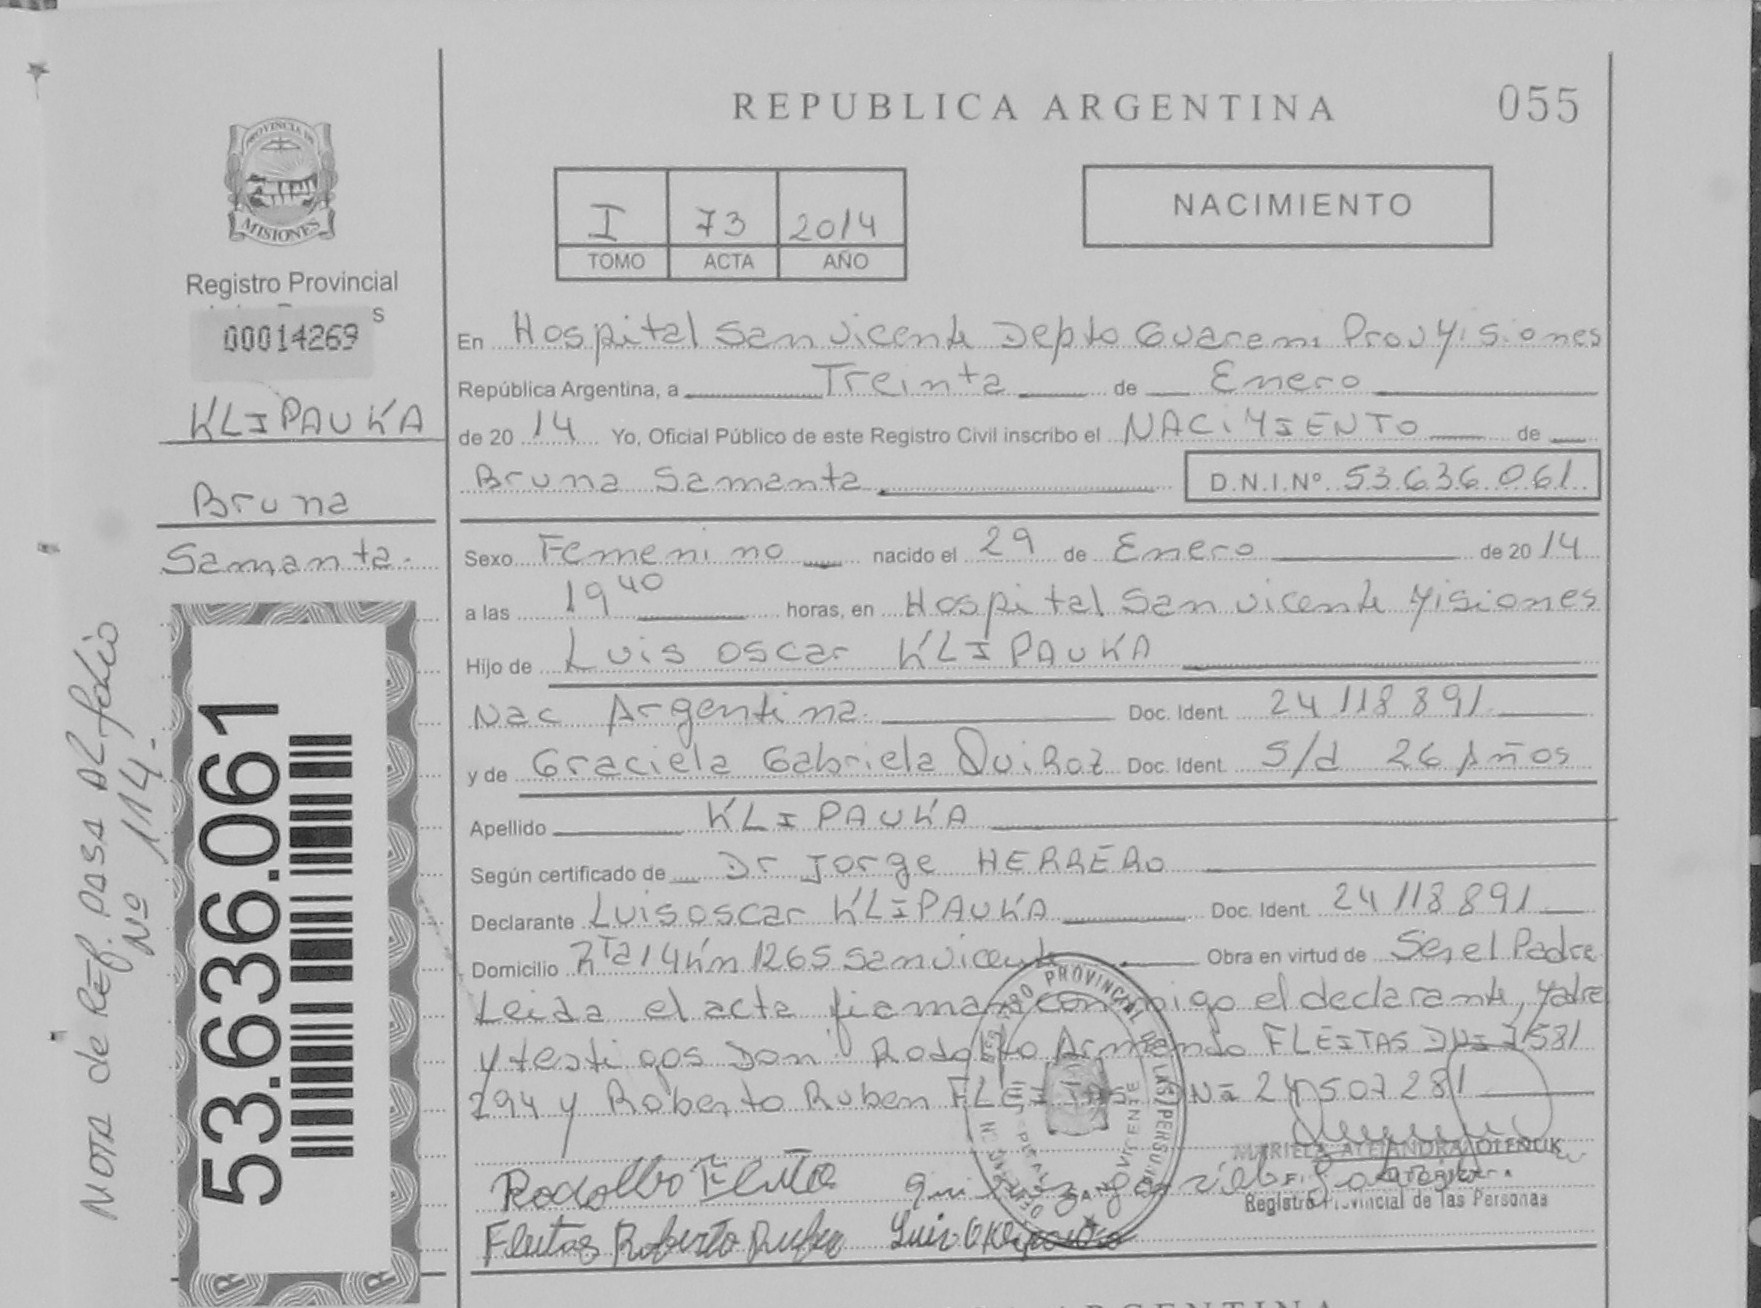 REPUBLICA ARGENTINA
055
PROVINCIA DE
MISIONES
Registro Provincial
s
00014269
KLIPAUKA
Bruna
Samanta.
NOTA de REF. PASA AL folio
Nº 114.-
53.636.061
I 73 2014
TOMO ACTA AÑO
NACIMIENTO
En Hospital San Vicente Depto Guarani Prov Misiones
República Argentina, a Treinta de Enero
de 2014 Yo, Oficial Público de este Registro Civil inscribo el NACIMIENTO de
Bruna Samanta D.N.I.Nº 53.636.061
Sexo Femenino nacido el 29 de Enero de 2014
a las 19 40 horas, en Hospital San Vicente Misiones
Hijo de Luis Oscar KLIPAUKA
Nac Argentina. Doc. Ident. 24118891
y de Graciela Gabriela Quiroz Doc. Ident. S/d 26 Años
Apellido KLIPAUKA
Según certificado de Dr Jorge HERRERO
Declarante Luis Oscar KLIPAUKA Doc. Ident. 24118891
Domicilio Rta 14 Km 1265 San Vicente Obra en virtud de Ser el Padre
Leida el acta firman conmigo el declarante, Madre
y testigos Don Rodolfo Armando FLEITAS DNI 7581
294 y Roberto Ruben FLEITAS DNI 24507281
Rodolfo Fleita
Fleitas Roberto Ruben
Luis O Klipauka
MARIELA ALEJANDRA OLENCUK
Registro Provincial de las Personas
ARGENTINA